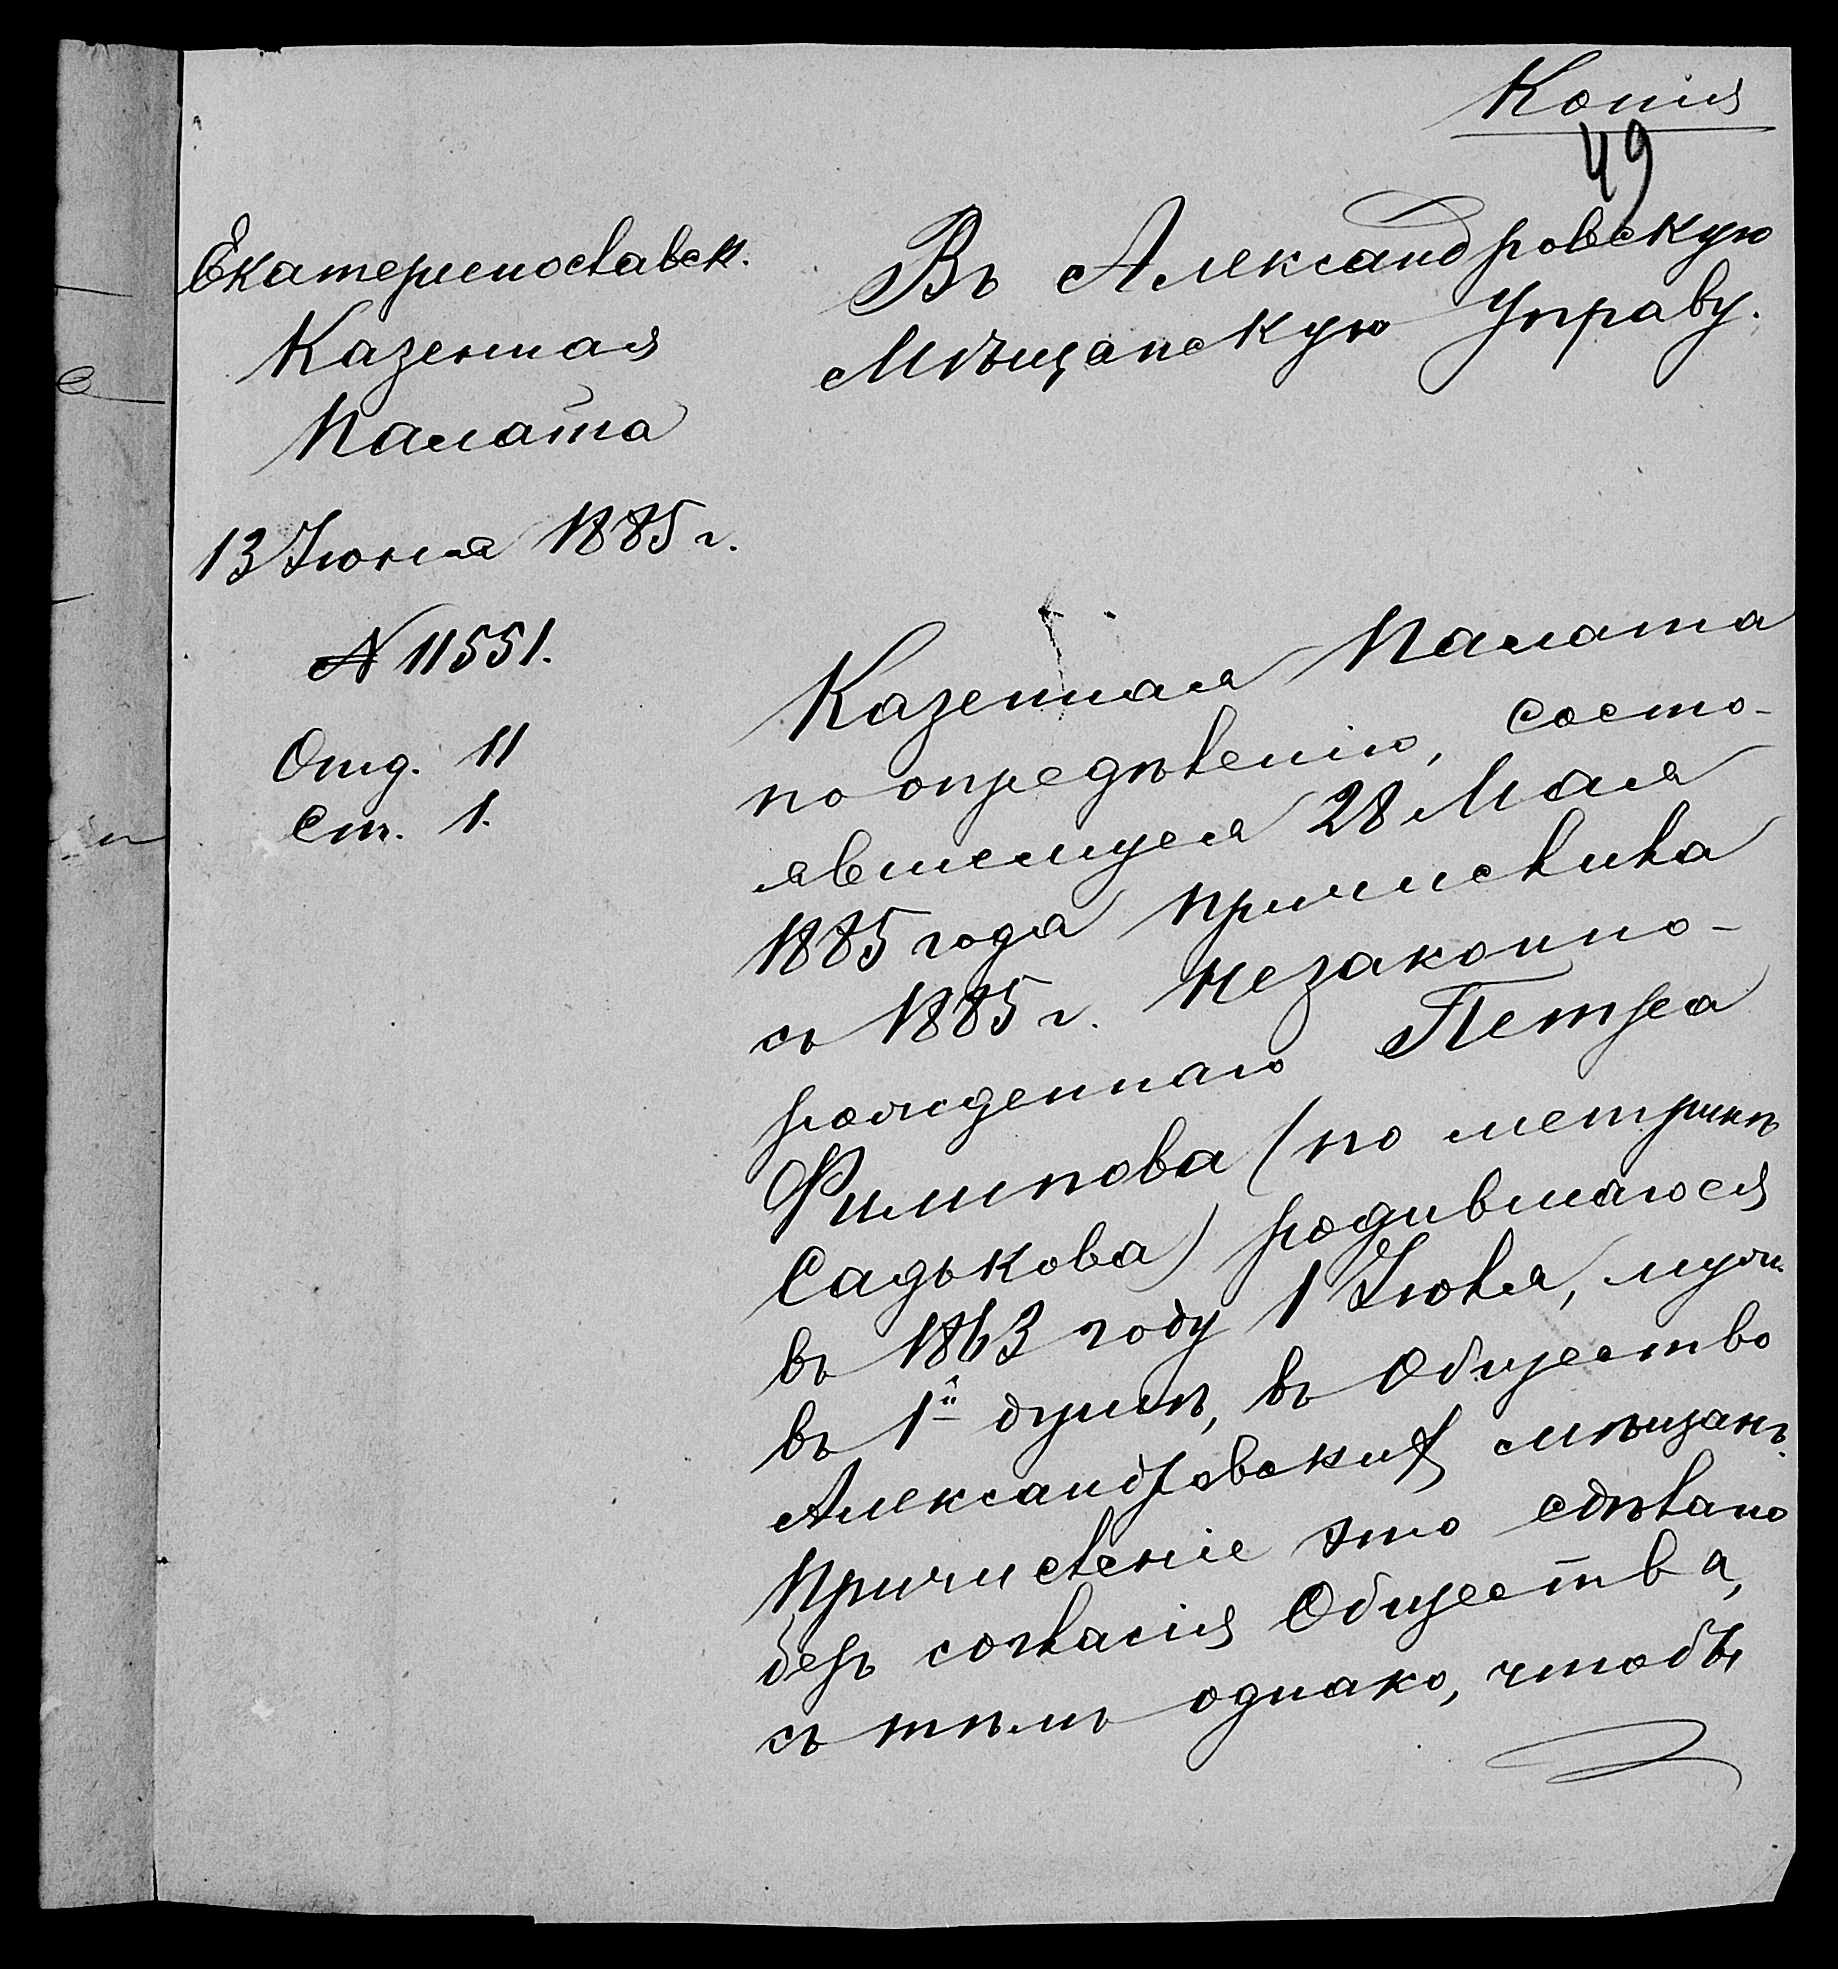 Копія
49
Екатеринославск.
Казенная
Палата
13 Іюня 1885 г.
№ 11551.
Отд. II
Ст. 1.
Въ Александровскую
Мѣщанскую Управу.
Казенная Палата
по опредѣленію, состо-
явшемуся 28 Мая
1885 года причислила
съ 1885 г. незаконно-
рожденнаго Петра
Филипова (по метрикѣ
Садькова) родившагося
въ 1863 году 1 Іюля, муж.
въ 1й душѣ, въ Общество
Александровскихъ мѣщанъ.
Причисленіе это сдѣлано
безъ согласія Общества,
съ тѣмъ однако, чтобы